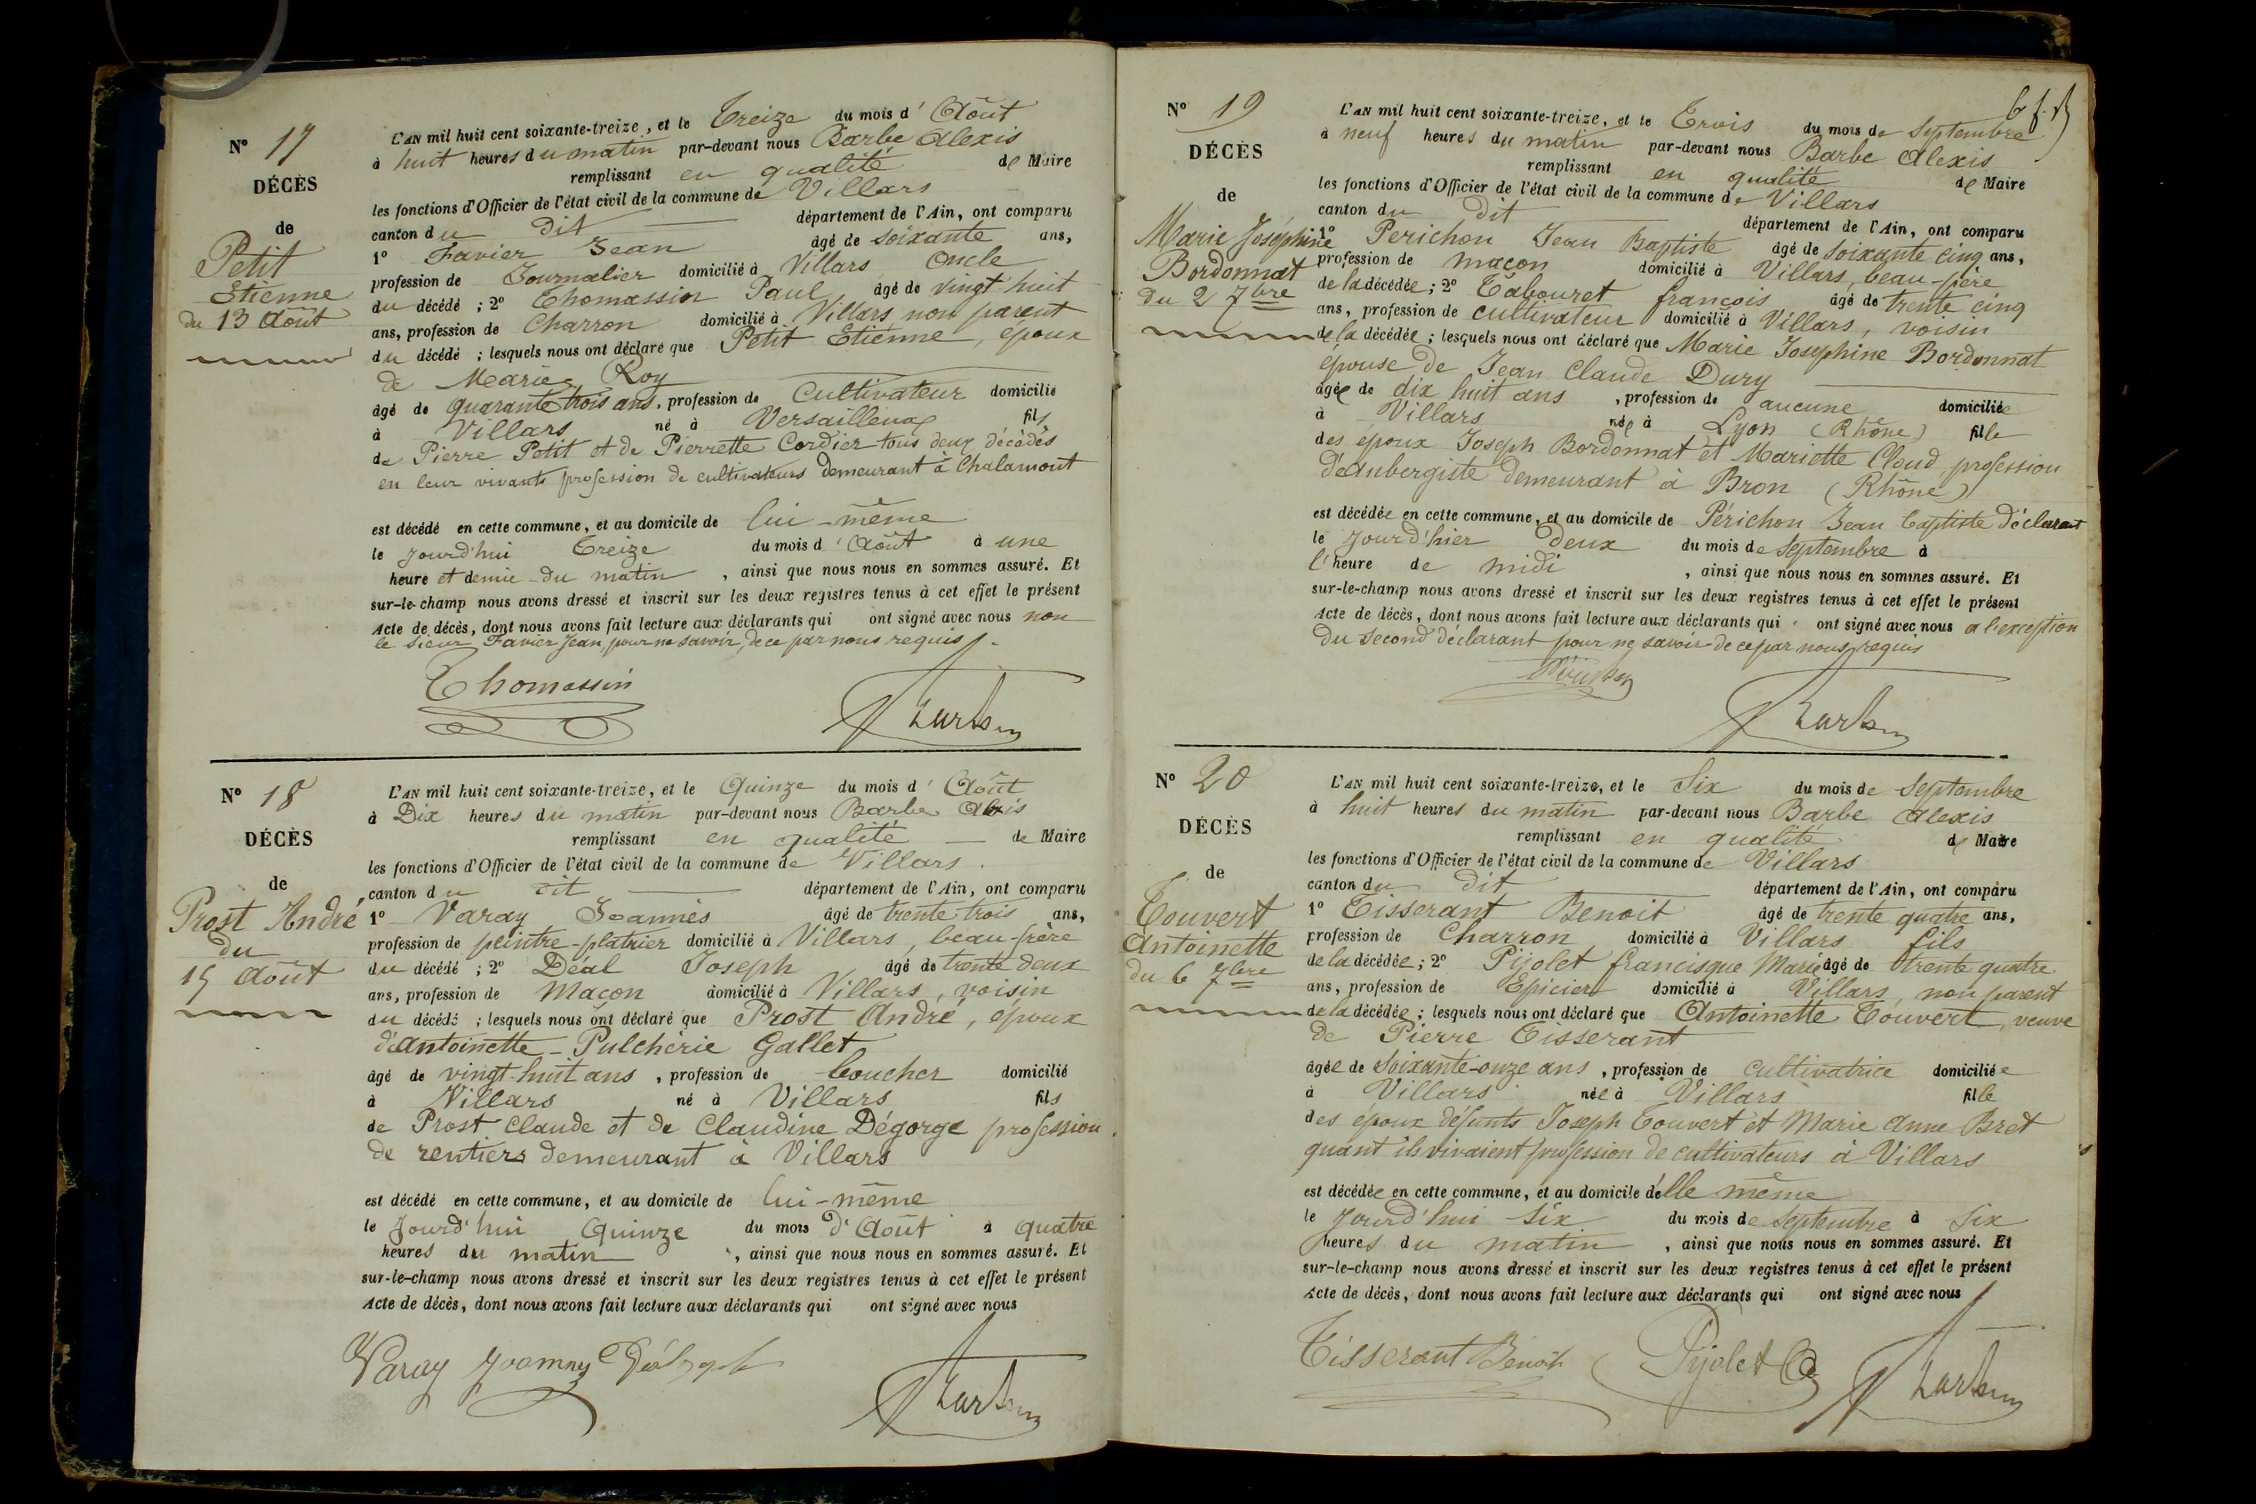 N° 17
DÉCÈS
de
Petit
Etienne
du 13 Août
L'AN mil huit cent soixante-treize, et le Treize du mois d'Août
à huit heures du matin par-devant nous Barbe Alexis
remplissant en qualité de Maire
les fonctions d'Officier de l'état civil de la commune de Villars
canton du dit département de l'Ain, ont comparu
1° Favier Jean âgé de soixante ans,
profession de Journalier domicilié à Villars Oncle
du décédé ; 2° Thomassin Paul âgé de vingt huit
ans, profession de Charron domicilié à Villars non parent
du décédé ; lesquels nous ont déclaré que Petit Etienne, époux
de Marie Roy
âgé de quarante trois ans, profession de Cultivateur domicilié
à Villars né à Versailleux fils
de Pierre Petit et de Pierrette Cordier tous deux décédés
en leur vivants profession de cultivateurs demeurant à Chalamont
est décédé en cette commune, et au domicile de lui-même
le jourd'hui Treize du mois d'Août à une
heure et demie du matin, ainsi que nous nous en sommes assuré. Et
sur-le-champ nous avons dressé et inscrit sur les deux registres tenus à cet effet le présent
Acte de décès, dont nous avons fait lecture aux déclarants qui ont signé avec nous non
le sieur Favier Jean, pour ne savoir, de ce par nous requis.
Thomassin
Barbe
N° 18
DÉCÈS
de
Prost André
du
15 Août
L'AN mil huit cent soixante-treize, et le Quinze du mois d'Août
à Dix heures du matin par-devant nous Barbe Alexis
remplissant en qualité de Maire
les fonctions d'Officier de l'état civil de la commune de Villars.
canton du dit département de l'Ain, ont comparu
1° Varay Joannès âgé de trente trois ans,
profession de peintre-plâtrier domicilié à Villars, beau-frère
du décédé ; 2° Déal Joseph âgé de trente deux
ans, profession de Maçon domicilié à Villars, voisin
du décédé ; lesquels nous ont déclaré que Prost André, époux
d'Antoinette-Pulchérie Gallet
âgé de vingt-huit ans, profession de boucher domicilié
à Villars né à Villars fils
de Prost Claude et de Claudine Dégorge profession
de rentiers demeurant à Villars
est décédé en cette commune, et au domicile de lui-même
le jourd'hui Quinze du mois d'Août à quatre
heures du matin, ainsi que nous nous en sommes assuré. Et
sur-le-champ nous avons dressé et inscrit sur les deux registres tenus à cet effet le présent
Acte de décès, dont nous avons fait lecture aux déclarants qui ont signé avec nous
Varay Joanny Déal Joseph
Barbe
N° 19
DÉCÈS
de
Marie Joséphine
Bordonnat
du 2 7bre
L'AN mil huit cent soixante-treize, et le Trois du mois de Septembre
à neuf heures du matin par-devant nous Barbe Alexis
remplissant en qualité de Maire
les fonctions d'Officier de l'état civil de la commune de Villars
canton du dit département de l'Ain, ont comparu
1° Perichon Jean Baptiste âgé de soixante cinq ans,
profession de maçon domicilié à Villars, beau-père
de la décédée ; 2° Tabouret françois âgé de trente cinq
ans, profession de cultivateur domicilié à Villars, voisin
de la décédée ; lesquels nous ont déclaré que Marie Josephine Bordonnat
épouse de Jean Claude Dury
âgée de dix huit ans, profession de aucune domiciliée
à Villars née à Lyon (Rhône) fille
des époux Joseph Bordonnat et Mariette Cloud profession
d'Aubergiste demeurant à Bron (Rhône)
est décédée en cette commune, et au domicile de Périchon Jean baptiste déclarant
le jourd'hier deux du mois de septembre à
l'heure de midi, ainsi que nous nous en sommes assuré. Et
sur-le-champ nous avons dressé et inscrit sur les deux registres tenus à cet effet le présent
Acte de décès, dont nous avons fait lecture aux déclarants qui ont signé avec nous à l'exception
du second déclarant pour ne savoir de ce par nous requis
Barbe
N° 20
DÉCÈS
de
Touvert
Antoinette
du 6 7bre
L'AN mil huit cent soixante-treize, et le Six du mois de Septembre
à huit heures du matin par-devant nous Barbe Alexis
remplissant en qualité de Maire
les fonctions d'Officier de l'état civil de la commune de Villars
canton du dit département de l'Ain, ont comparu
1° Tisserant Benoit âgé de trente quatre ans,
profession de Charron domicilié à Villars fils
de la décédée ; 2° Pijolet francisque Marie âgé de trente quatre
ans, profession de Epicier domicilié à Villars, non parent
de la décédée ; lesquels nous ont déclaré que Antoinette Touvert, veuve
de Pierre Tisserant
âgée de soixante-onze ans, profession de cultivatrice domiciliée
à Villars née à Villars fille
des époux défunts Joseph Touvert et Marie Anne Bret
quant ils vivaient profession de cultivateurs à Villars
est décédée en cette commune, et au domicile d'elle même
le jourd'hui six du mois de septembre à six
heures du matin, ainsi que nous nous en sommes assuré. Et
sur-le-champ nous avons dressé et inscrit sur les deux registres tenus à cet effet le présent
Acte de décès, dont nous avons fait lecture aux déclarants qui ont signé avec nous
Tisserant Benoit Pijolet
Barbe